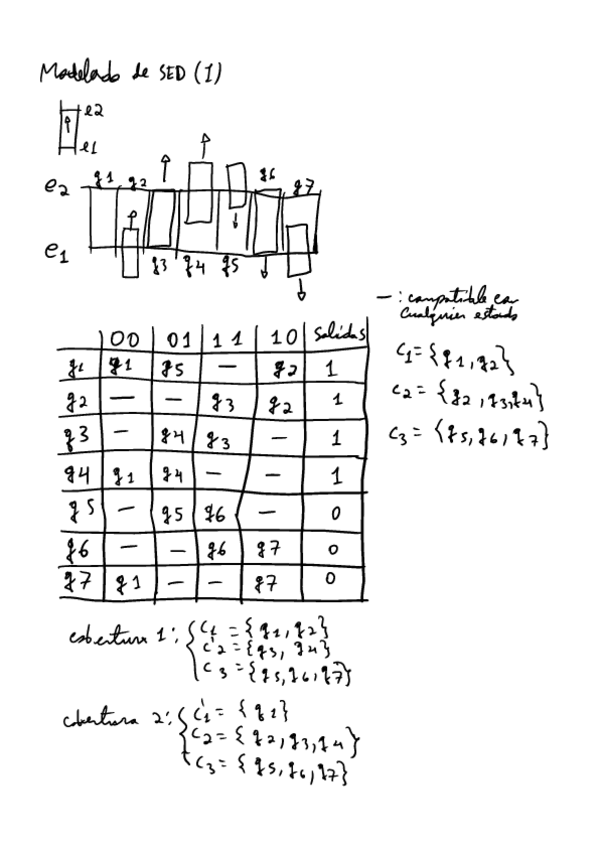 Modelado de SED (1)
e2
e1
e2 q1 q2 q6 q7
e1 q3 q4 q5
— : compatible con
cualquier estado
00 01 11 10 Salidas
q1 q1 q5 — q2 1
q2 — — q3 q2 1
q3 — q4 q3 — 1
q4 q1 q4 — — 1
q5 — q5 q6 — 0
q6 — — q6 q7 0
q7 q1 — — q7 0
C1 = {q1, q2}
C2 = {q2, q3, q4}
C3 = {q5, q6, q7}
cobertura 1: { C1 = {q1, q2}
C'2 = {q3, q4}
C3 = {q5, q6, q7}
cobertura 2: { C'1 = {q1}
C2 = {q2, q3, q4}
C3 = {q5, q6, q7}